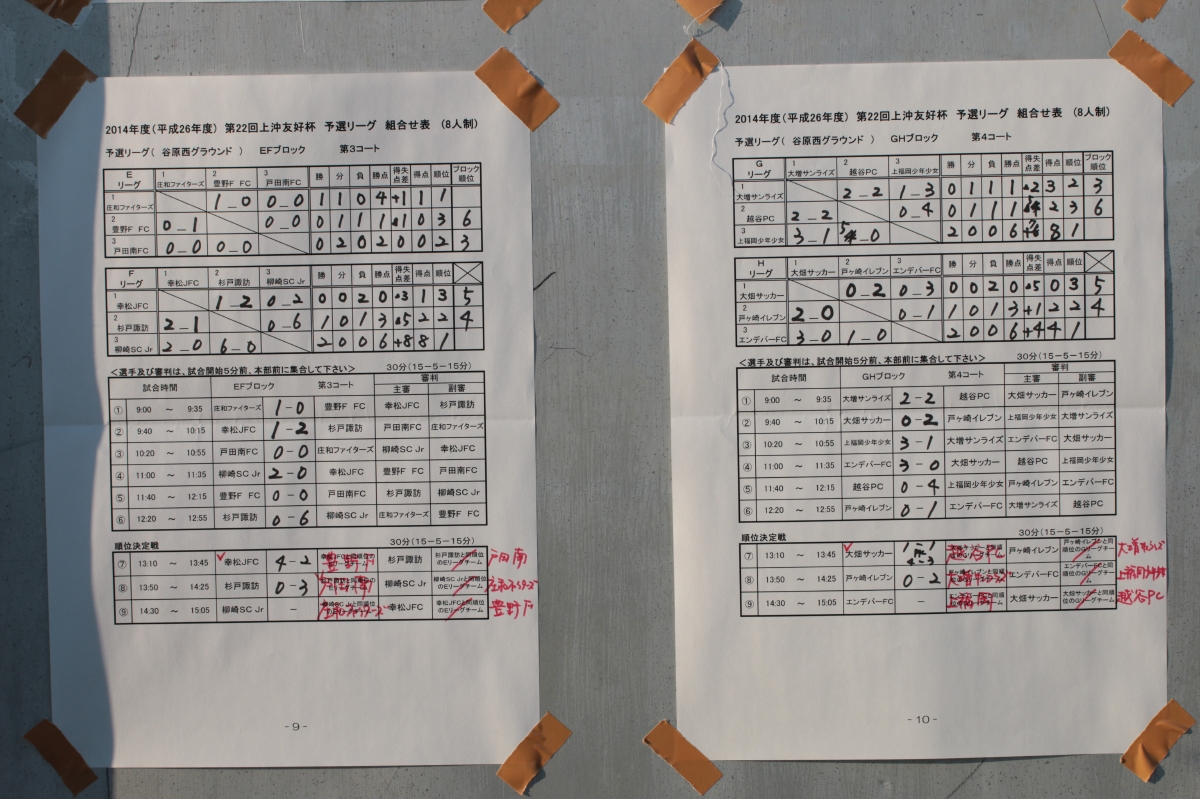 2014年度(平成26年度) 第22回上沖友好杯 予選リーグ 組合せ表 (8人制)
予選リーグ( 谷原西グラウンド ) EFブロック 第3コート
E リーグ 1 庄和ファイターズ 2 豊野F FC 3 戸田南FC 勝 分 負 勝点 得失点差 得点 順位 ブロック順位
1 庄和ファイターズ 1_0 0_0 1 1 0 4 +1 1 1
2 豊野F FC 0_1 0_0 0 1 1 1 -1 0 3 6
3 戸田南FC 0_0 0_0 0 2 0 2 0 0 2 3
F リーグ 1 幸松JFC 2 杉戸諏訪 3 柳崎SC Jr 勝 分 負 勝点 得失点差 得点 順位
1 幸松JFC 1_2 0_2 0 0 2 0 -3 1 3 5
2 杉戸諏訪 2_1 0_6 1 0 1 3 -5 2 2 4
3 柳崎SC Jr 2_0 6_0 2 0 0 6 +8 8 1
<選手及び審判は、試合開始5分前、本部前に集合して下さい> 30分(15-5-15分)
試合時間 EFブロック 第3コート 審判 主審 副審
① 9:00 ～ 9:35 庄和ファイターズ 1-0 豊野F FC 幸松JFC 杉戸諏訪
② 9:40 ～ 10:15 幸松JFC 1-2 杉戸諏訪 戸田南FC 庄和ファイターズ
③ 10:20 ～ 10:55 戸田南FC 0-0 庄和ファイターズ 柳崎SC Jr 幸松JFC
④ 11:00 ～ 11:35 柳崎SC Jr 2-0 幸松JFC 豊野F FC 戸田南FC
⑤ 11:40 ～ 12:15 豊野F FC 0-0 戸田南FC 杉戸諏訪 柳崎SC Jr
⑥ 12:20 ～ 12:55 杉戸諏訪 0-6 柳崎SC Jr 庄和ファイターズ 豊野F FC
順位決定戦 30分(15-5-15分)
⑦ 13:10 ～ 13:45 幸松JFC 4-2 豊野F 杉戸諏訪 杉戸諏訪と同順位のEリーグチーム 戸田南
⑧ 13:50 ～ 14:25 杉戸諏訪 0-3 柳崎SC Jr 柳崎SC Jrと同順位のEリーグチーム
⑨ 14:30 ～ 15:05 柳崎SC Jr - 幸松JFC 幸松JFCと同順位のEリーグチーム 豊野F
- 9 -
2014年度(平成26年度) 第22回上沖友好杯 予選リーグ 組合せ表 (8人制)
予選リーグ( 谷原西グラウンド ) GHブロック 第4コート
G リーグ 1 大増サンライズ 2 越谷PC 3 上福岡少年少女 勝 分 負 勝点 得失点差 得点 順位 ブロック順位
1 大増サンライズ 2_2 1_3 0 1 1 1 -2 3 2 3
2 越谷PC 2_2 0_4 0 1 1 1 2 3 6
3 上福岡少年少女 3_1 _0 2 0 0 6 8 1
H リーグ 1 大畑サッカー 2 戸ヶ崎イレブン 3 エンデバーFC 勝 分 負 勝点 得失点差 得点 順位
1 大畑サッカー 0_2 0_3 0 0 2 0 -5 0 3 5
2 戸ヶ崎イレブン 2_0 0_1 1 0 1 3 +1 2 2 4
3 エンデバーFC 3_0 1_0 2 0 0 6 +4 4 1
<選手及び審判は、試合開始5分前、本部前に集合して下さい> 30分(15-5-15分)
試合時間 GHブロック 第4コート 審判 主審 副審
① 9:00 ～ 9:35 大増サンライズ 2-2 越谷PC 大畑サッカー 戸ヶ崎イレブン
② 9:40 ～ 10:15 大畑サッカー 0-2 戸ヶ崎イレブン 上福岡少年少女 大増サンライズ
③ 10:20 ～ 10:55 上福岡少年少女 3-1 大増サンライズ エンデバーFC 大畑サッカー
④ 11:00 ～ 11:35 エンデバーFC 3-0 大畑サッカー 越谷PC 上福岡少年少女
⑤ 11:40 ～ 12:15 越谷PC 0-4 上福岡少年少女 戸ヶ崎イレブン エンデバーFC
⑥ 12:20 ～ 12:55 戸ヶ崎イレブン 0-1 エンデバーFC 大増サンライズ 越谷PC
順位決定戦 30分(15-5-15分)
⑦ 13:10 ～ 13:45 大畑サッカー 1-1 PK 4-3 越谷PC 戸ヶ崎イレブン 戸ヶ崎イレブンと同順位のGリーグチーム 大増サンライズ
⑧ 13:50 ～ 14:25 戸ヶ崎イレブン 0-2 大増サンライズ エンデバーFC エンデバーFCと同順位のGリーグチーム
⑨ 14:30 ～ 15:05 エンデバーFC - 上福岡 大畑サッカー 大畑サッカーと同順位のGリーグチーム 越谷PC
- 10 -